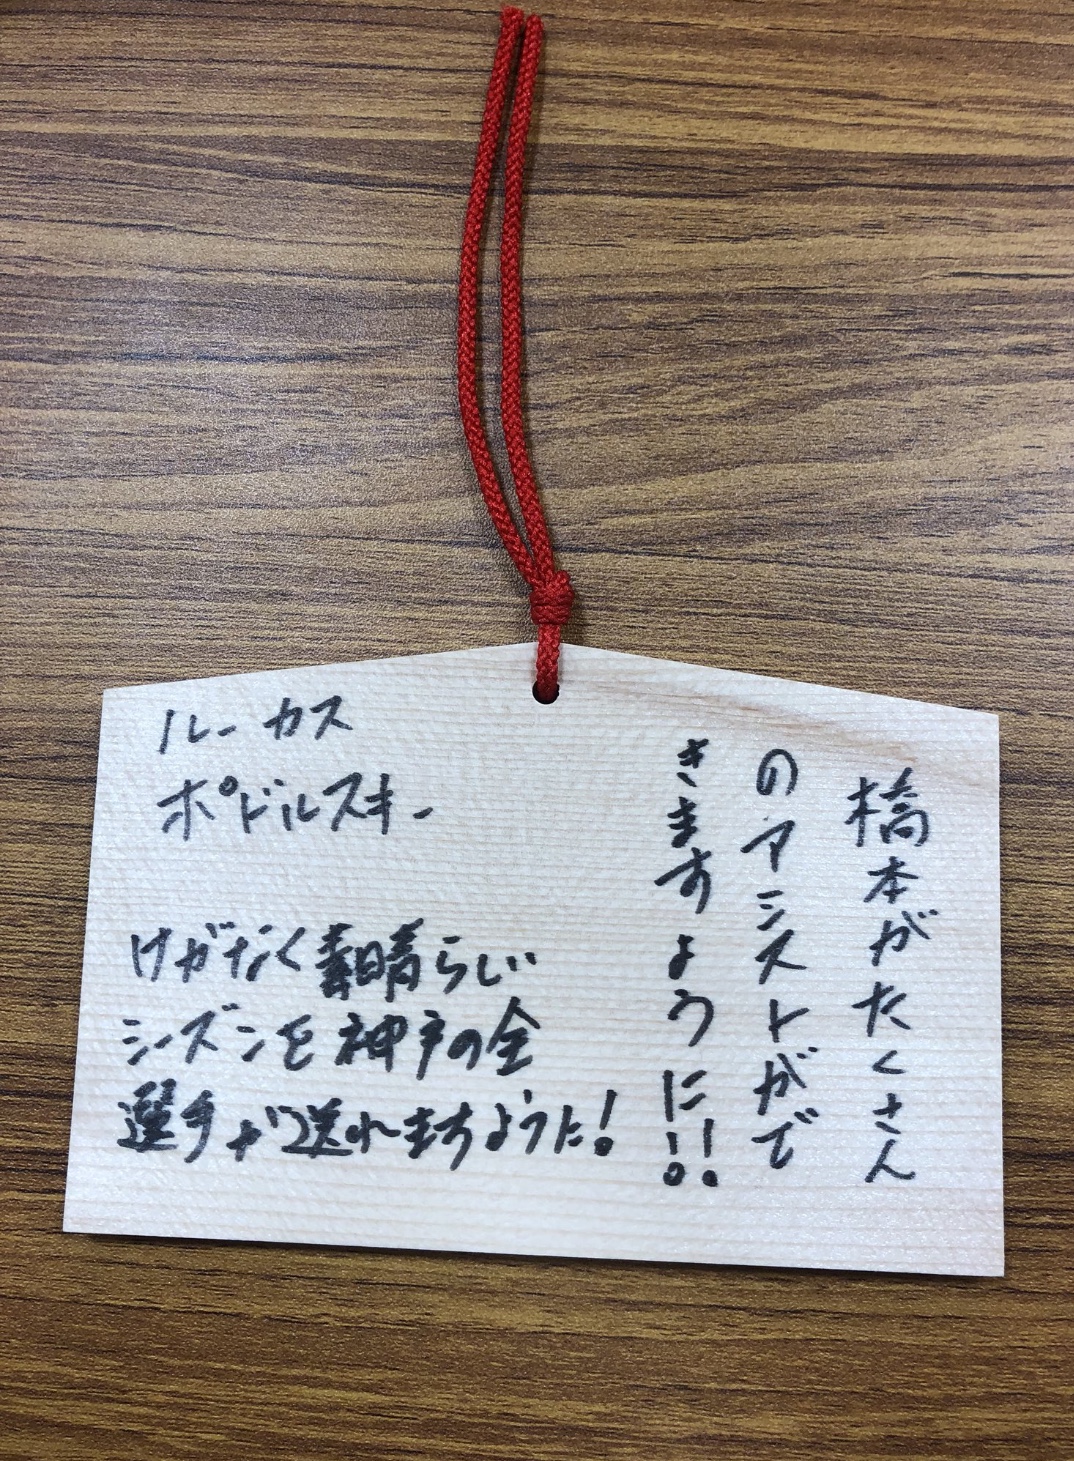 橋本がたくさん
のアシストがで
きますように!!
ルーカス
ポドルスキー
けがなく素晴らしい
シーズンを神戸の全
選手が送れますように!